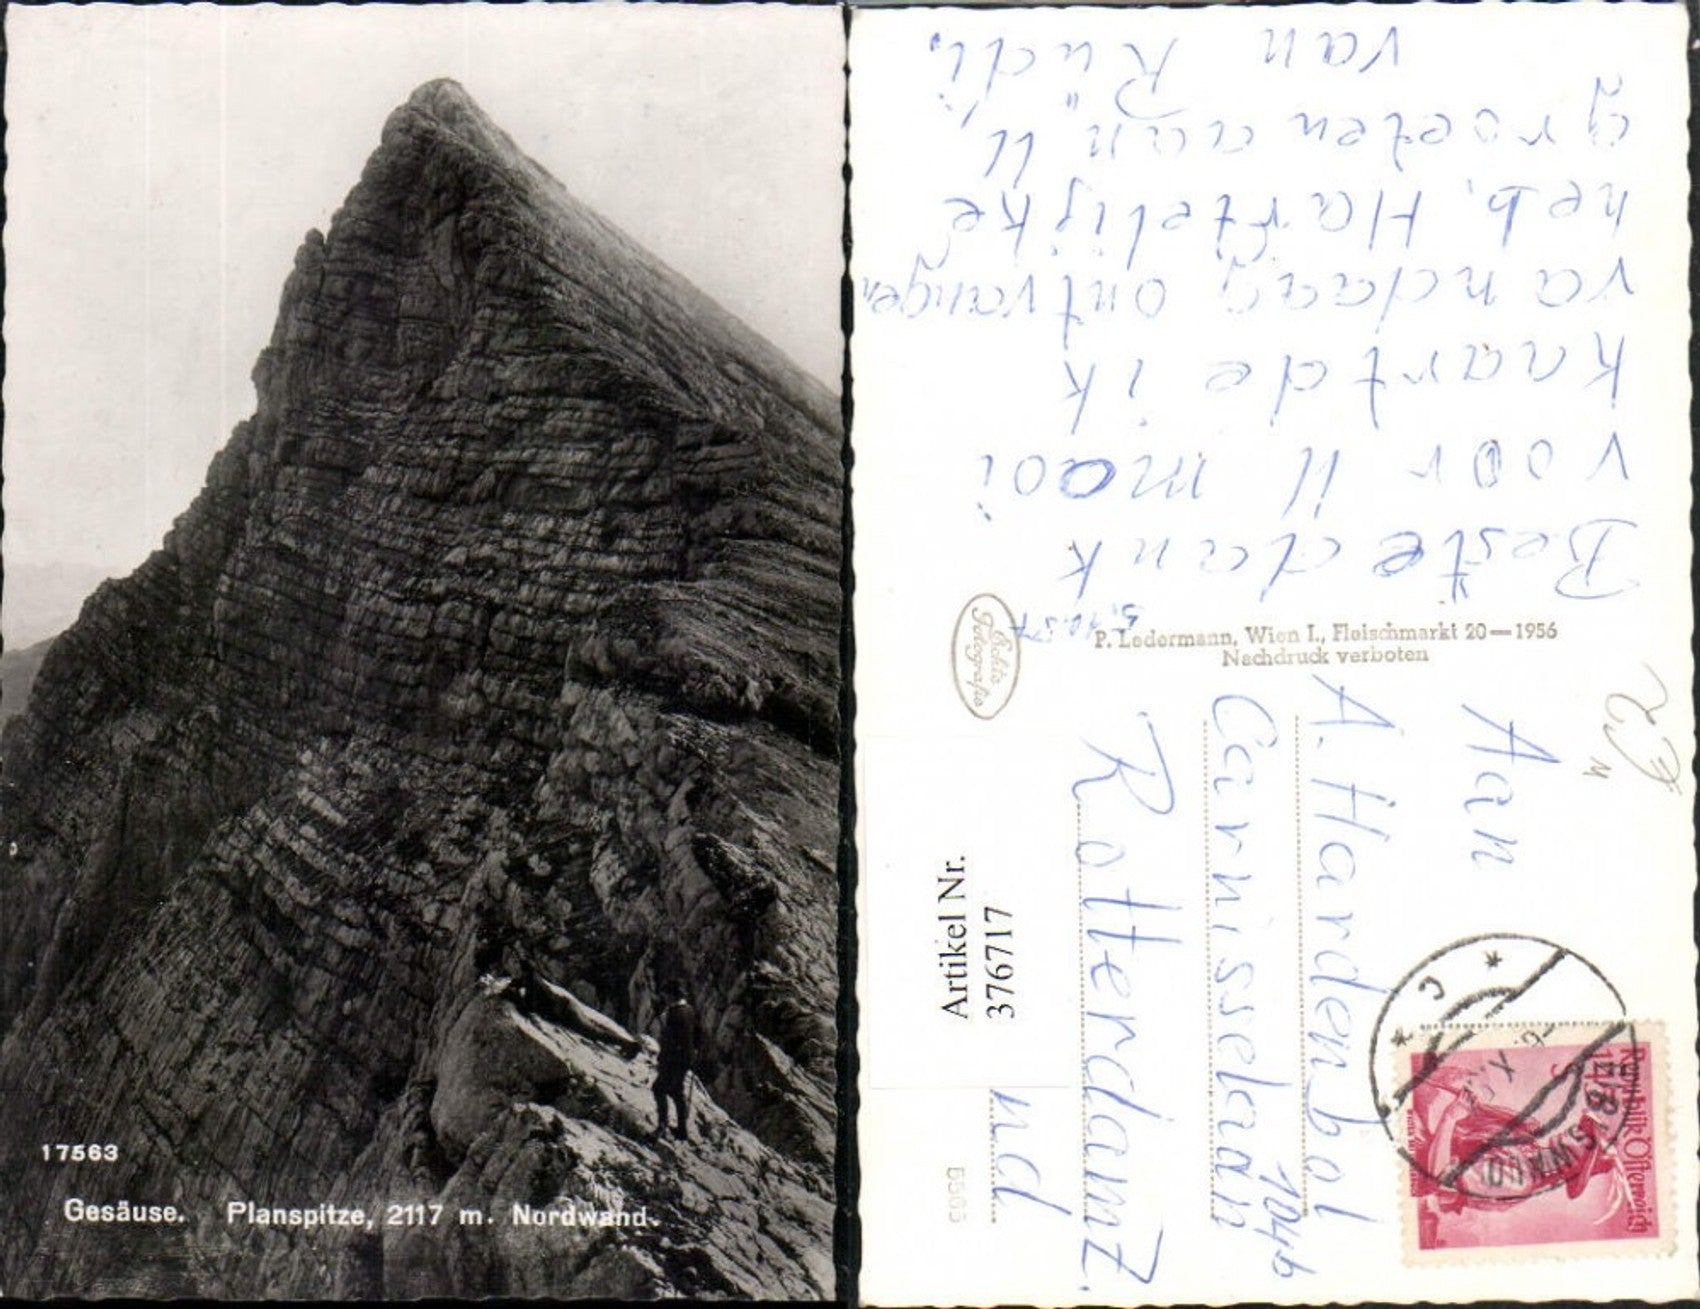 17563
Gesäuse. Planspitze, 2117 m. Nordwand.
Beste dank
voor U mooi
kaart de ik
vandaag ontvangen
heb. Hartelijke
groeten aan U
van Rudi.
5.10.57
Echte
Fotografie
P. Ledermann, Wien I., Fleischmarkt 20—1956
Nachdruck verboten
Aan
A. Hardenbol
Carnisselaan 104b
Rotterdam Z.
nd
Artikel Nr.
376717
Republik Österreich